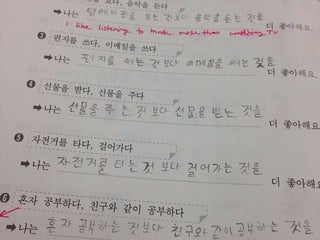 보다, 음악을 듣다
나는 텔레비전을 보는 것보다 음악을 듣는 것을 더 좋아해요.
I like listening to music more than watching TV
❸ 편지를 쓰다, 이메일을 쓰다
➔ 나는 편지를 쓰는 것보다 이메일을 쓰는 것을 더 좋아해요.
❹ 선물을 받다, 선물을 주다
➔ 나는 선물을 주는 것보다 선물을 받는 것을 더 좋아해요.
❺ 자전거를 타다, 걸어가다
➔ 나는 자전거를 타는 것 보다 걸어가는 것을 더 좋아해요.
❻ 혼자 공부하다, 친구와 같이 공부하다
➔ 나는 혼자 공부하는 것보다 친구와 같이 공부하는 것을